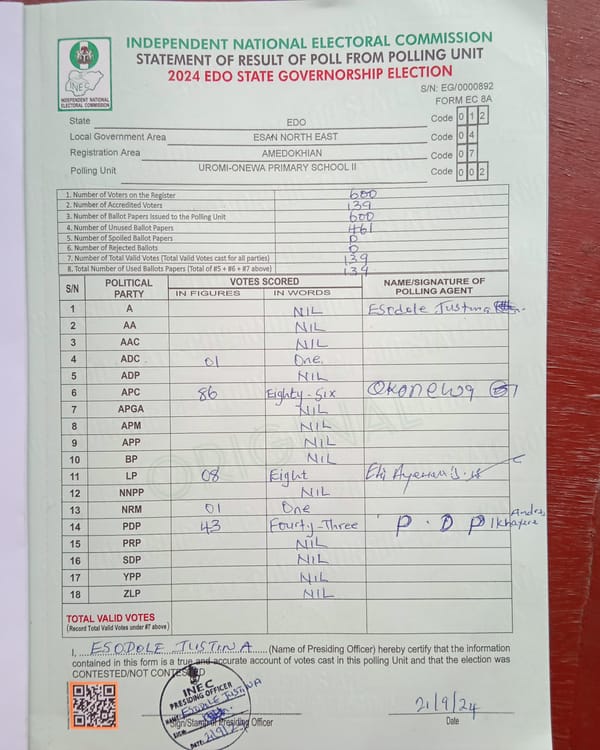 INDEPENDENT NATIONAL ELECTORAL COMMISSION
STATEMENT OF RESULT OF POLL FROM POLLING UNIT
2024 EDO STATE GOVERNORSHIP ELECTION
INEC
INDEPENDENT NATIONAL
ELECTORAL COMMISSION
S/N: EG/0000892
FORM EC 8A
State EDO Code 0 1 2
Local Government Area ESAN NORTH EAST Code 0 4
Registration Area AMEDOKHIAN Code 0 7
Polling Unit UROMI-ONEWA PRIMARY SCHOOL II Code 0 0 2
1. Number of Voters on the Register 600
2. Number of Accredited Voters 139
3. Number of Ballot Papers Issued to the Polling Unit 600
4. Number of Unused Ballot Papers 461
5. Number of Spoiled Ballot Papers 0
6. Number of Rejected Ballots 0
7. Number of Total Valid Votes (Total Valid Votes cast for all parties) 139
8. Total Number of Used Ballots Papers (Total of #5 + #6 + #7 above) 139
S/N POLITICAL PARTY VOTES SCORED NAME/SIGNATURE OF POLLING AGENT
IN FIGURES IN WORDS
1 A NIL Esodole Justina
2 AA NIL
3 AAC NIL
4 ADC 01 One
5 ADP NIL
6 APC 86 Eighty-Six Okonewa
7 APGA NIL
8 APM NIL
9 APP NIL
10 BP NIL
11 LP 08 Eight
12 NNPP NIL
13 NRM 01 One
14 PDP 43 Fourty-Three P.D P
15 PRP NIL
16 SDP NIL
17 YPP NIL
18 ZLP NIL
ORIGINAL
TOTAL VALID VOTES
(Record Total Valid Votes under #7 above)
I, ESODOLE JUSTINA (Name of Presiding Officer) hereby certify that the information
contained in this form is a true and accurate account of votes cast in this polling Unit and that the election was
CONTESTED/NOT CONTESTED
INEC
PRESIDING OFFICER
NAME: ESODOLE JUSTINA
SIGN:
DATE: 21/9/2
Sign/Stamp of Presiding Officer
21/9/24
Date